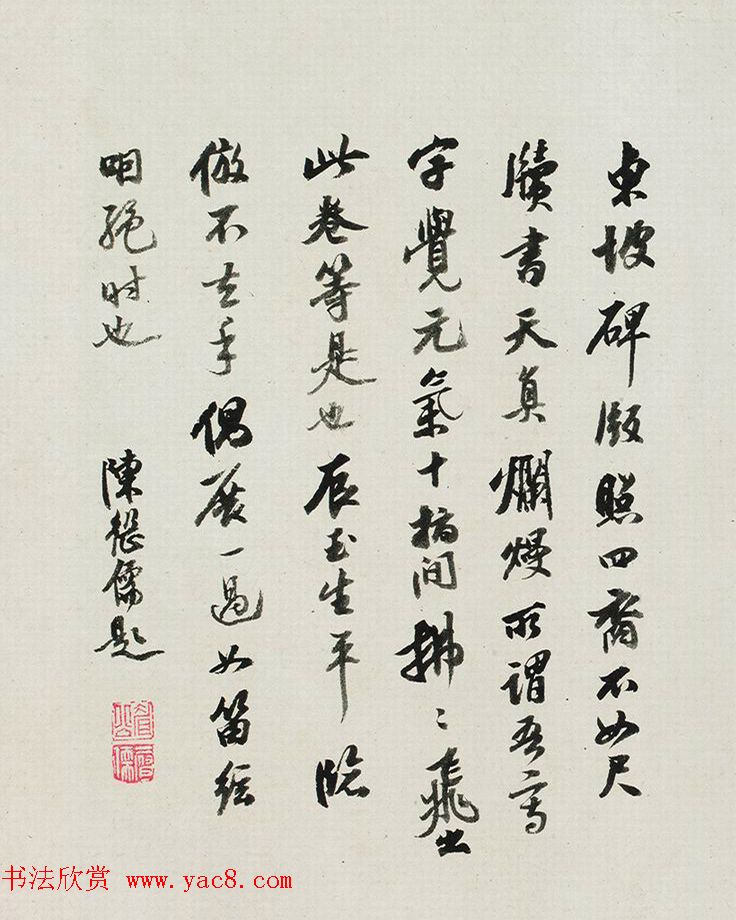 東坡碑版照四裔不如尺
牘書天真爛熳所謂吾寫
字覺元氣十指間拂〻飛出
此卷等是也辰玉生平臨
倣不去手偶展一過如留絃
明絕時也
陳繼儒題
书法欣赏 www.yac8.com